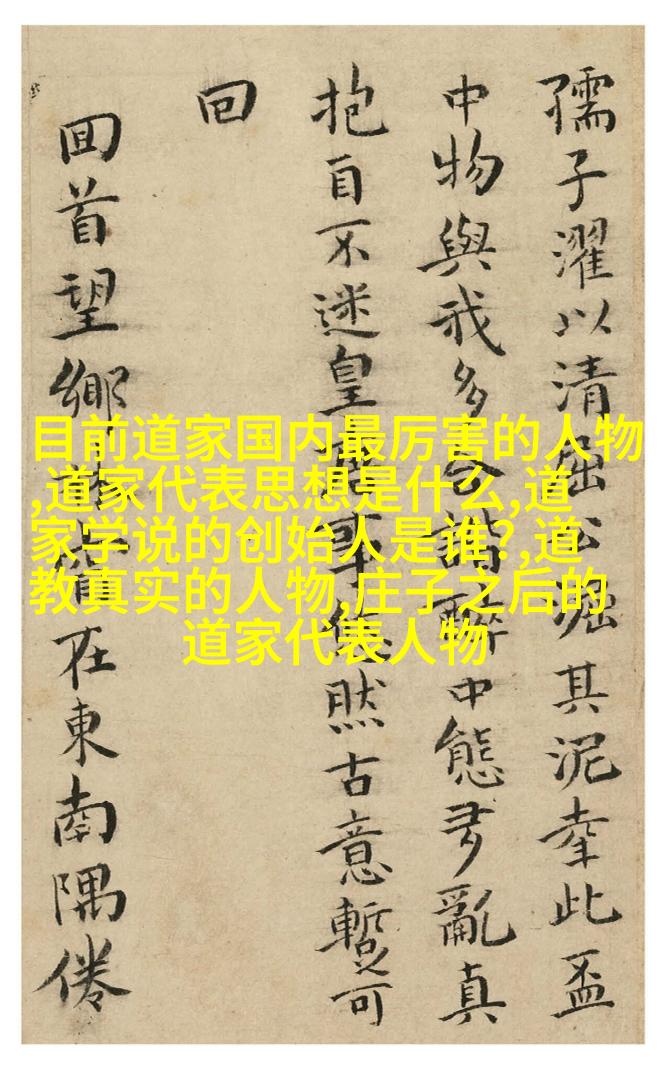 孺子濯以清屈公淈其泥幸此盃
中物與我多合諧醉中態多亂真
抱自不迷皇然古意暫可
回
囬首望鄉在東南隅倦
目前道家国内最厉害的人物
,道家代表思想是什么,道
家学说的创始人是谁?,道
教真实的人物,庄子之后的
道家代表人物